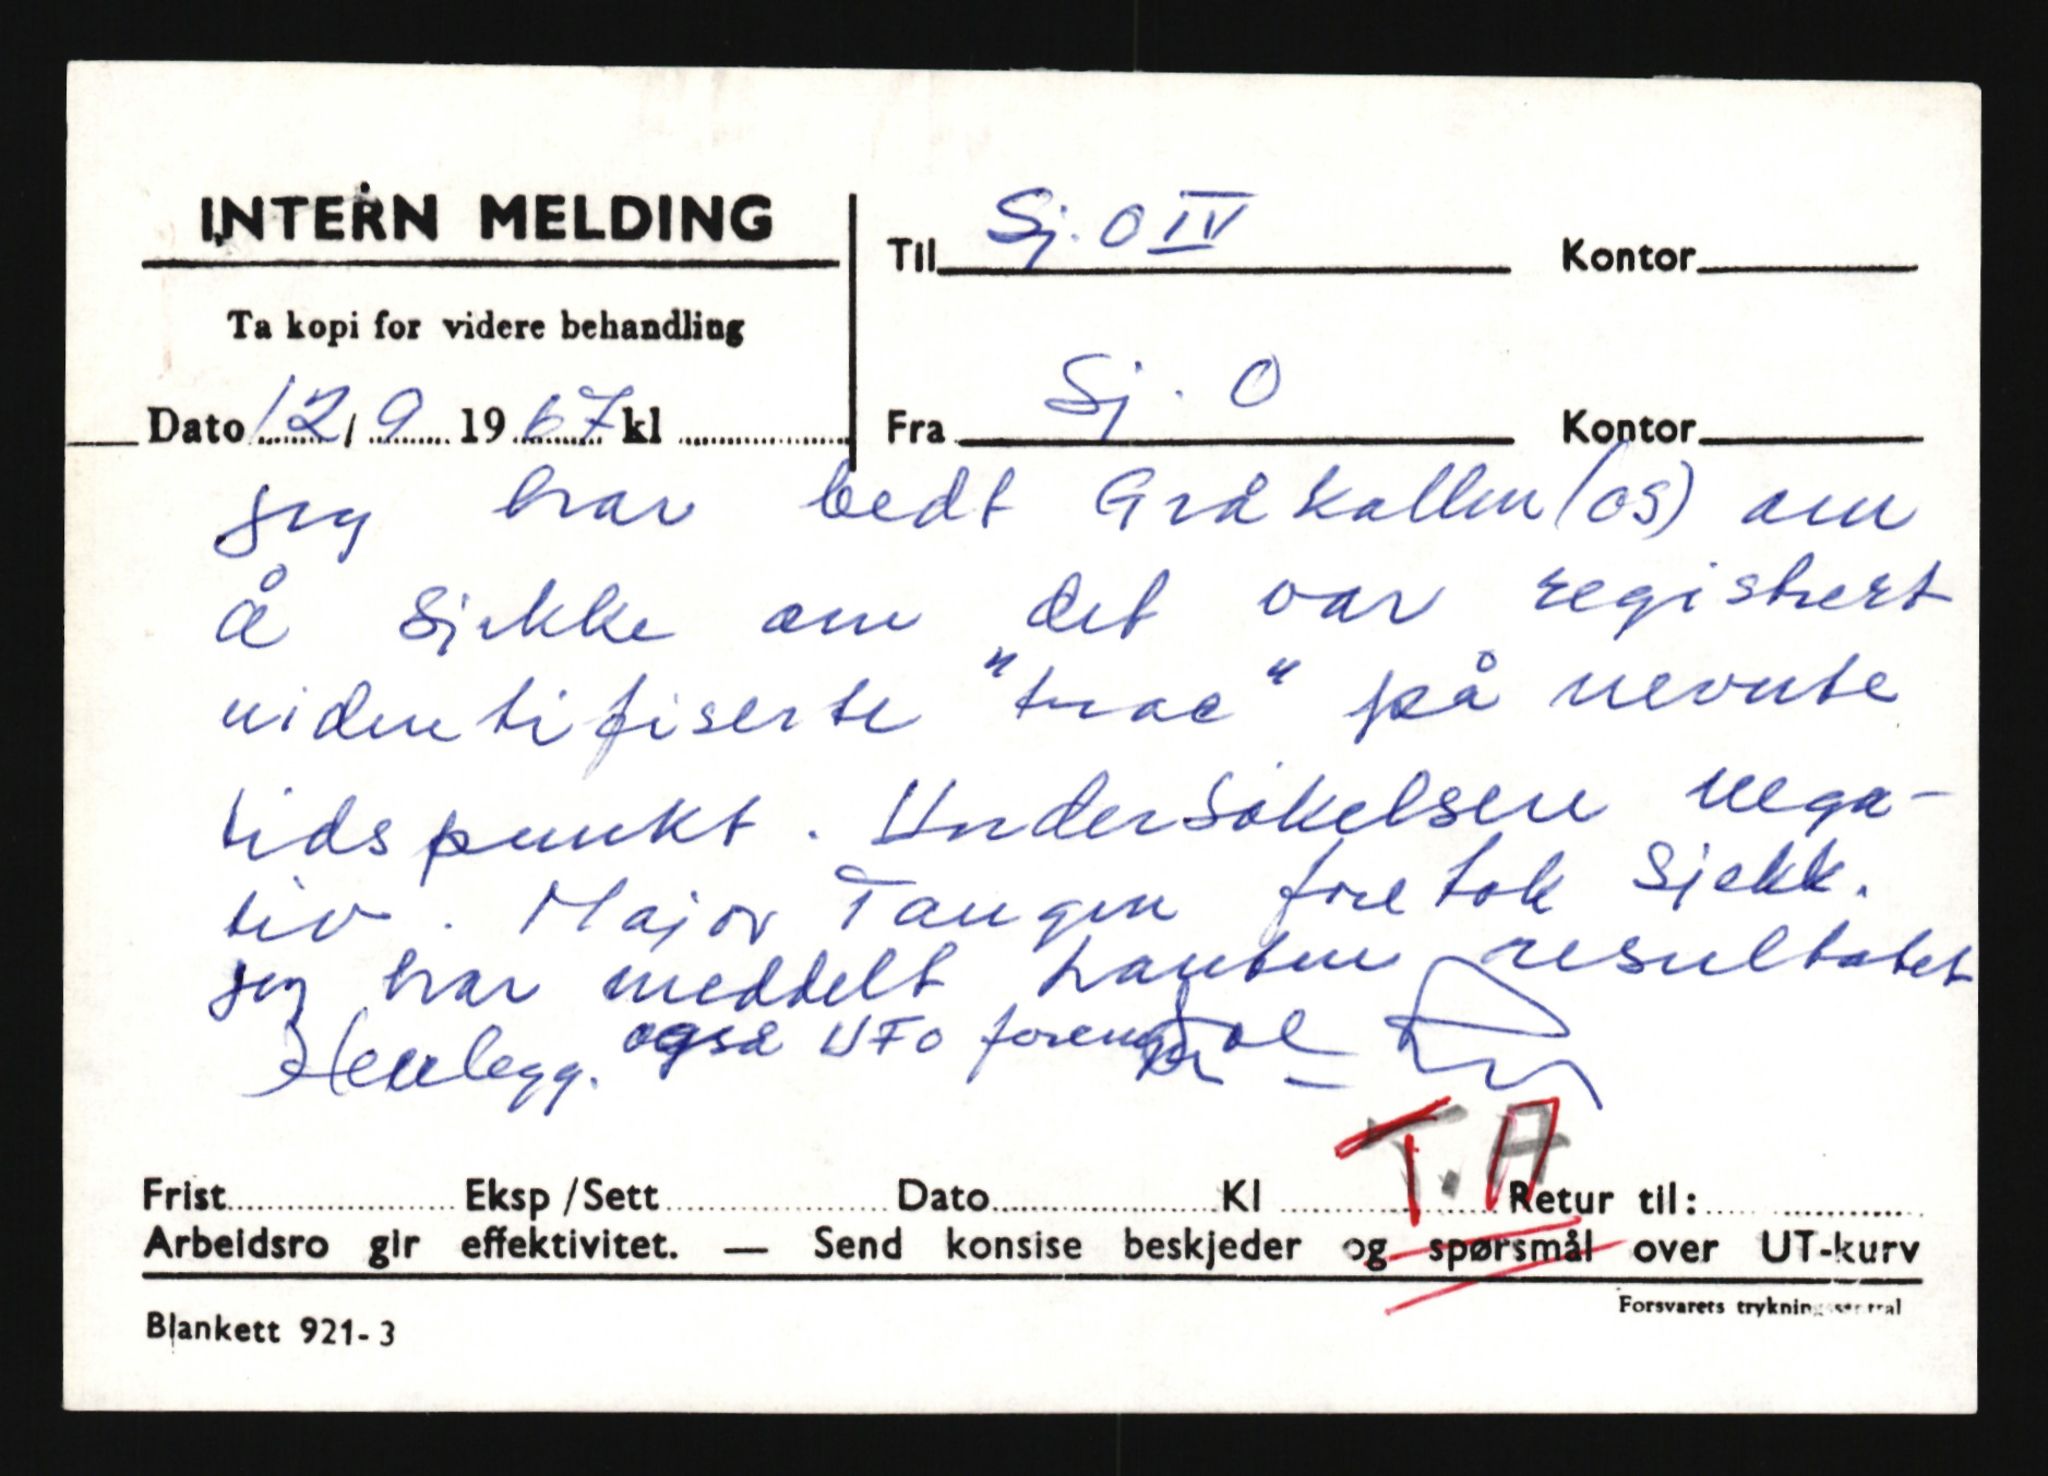 INTERN MELDING
Ta kopi for videre behandling
Dato 12/9 1967 kl
Til Sj. O IV Kontor
Fra Sj. O Kontor
Jeg har bedt Gråkallen (OS) om
å sjekke om det var registrert
uidentifiserte "trac" på nevnte
tidspunkt. Undersøkelsen nega-
tiv. Major Tangen foretok sjekk.
Jeg har meddelt resultatet
også UFO
T.A
Frist Eksp/Sett Dato Kl Retur til:
Arbeidsro gir effektivitet. — Send konsise beskjeder og spørsmål over UT-kurv
Forsvarets trykningssentral
Blankett 921-3